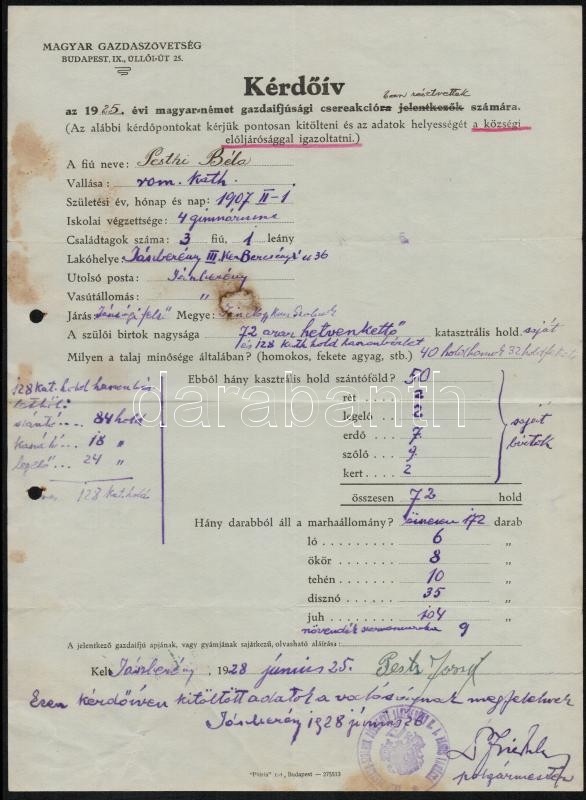 MAGYAR GAZDASZÖVETSÉG
BUDAPEST, IX., ÜLLŐI-ÚT 25.
Kérdőív
ban résztvettek
az 1925. évi magyar-német gazdaifjúsági csereakcióra jelentkezők számára.
(Az alábbi kérdőpontokat kérjük pontosan kitölteni és az adatok helyességét a községi
elöljárósággal igazoltatni.)
A fiú neve: Pesthi Béla
Vallása: rom. kath.
Születési év, hónap és nap: 1907 II-1
Iskolai végzettsége: 4 gimnázium
Családtagok száma: 3 fiú, 1 leány
Lakóhelye: Jászberény III. Ker Bercsényi u 36
Utolsó posta: Jászberény
Vasútállomás: "
Járás: Jászsági felső Megye: Jász Nagykun Szolnok
A szülői birtok nagysága 72 azaz hetvenkettő katasztrális hold. saját
és 128 kath hold haszonbérlet
Milyen a talaj minősége általában? (homokos, fekete agyag, stb.) 40 hold homok 32 hold fekete
128 kat. hold haszonbér
Ebből hány kasztrális hold szántóföld? 50
rét 2
szántó... 84 hold
legelő 2
kaszáló... 18 "
erdő 7
saját
legelő... 24 "
szőlő 9
birtok
kert 2
128 kat. hold
összesen 72 hold
Hány darabból áll a marhaállomány? összesen 172 darab
ló 6 "
ökör 8 "
tehén 10 "
disznó 35 "
juh 104 "
növendék szarvasmarha 9
A jelentkező gazdaifjú apjának, vagy gyámjának sajátkezű, olvasható aláírása:
Kelt Jászberény, 1928 június 25. Pesti József
Ezen kérdőíven kitöltött adatok a valóságnak megfelelnek
Jászberény 1928 június 26
polgármester
"Pátria" r.-t., Budapest — 275513
darabanth